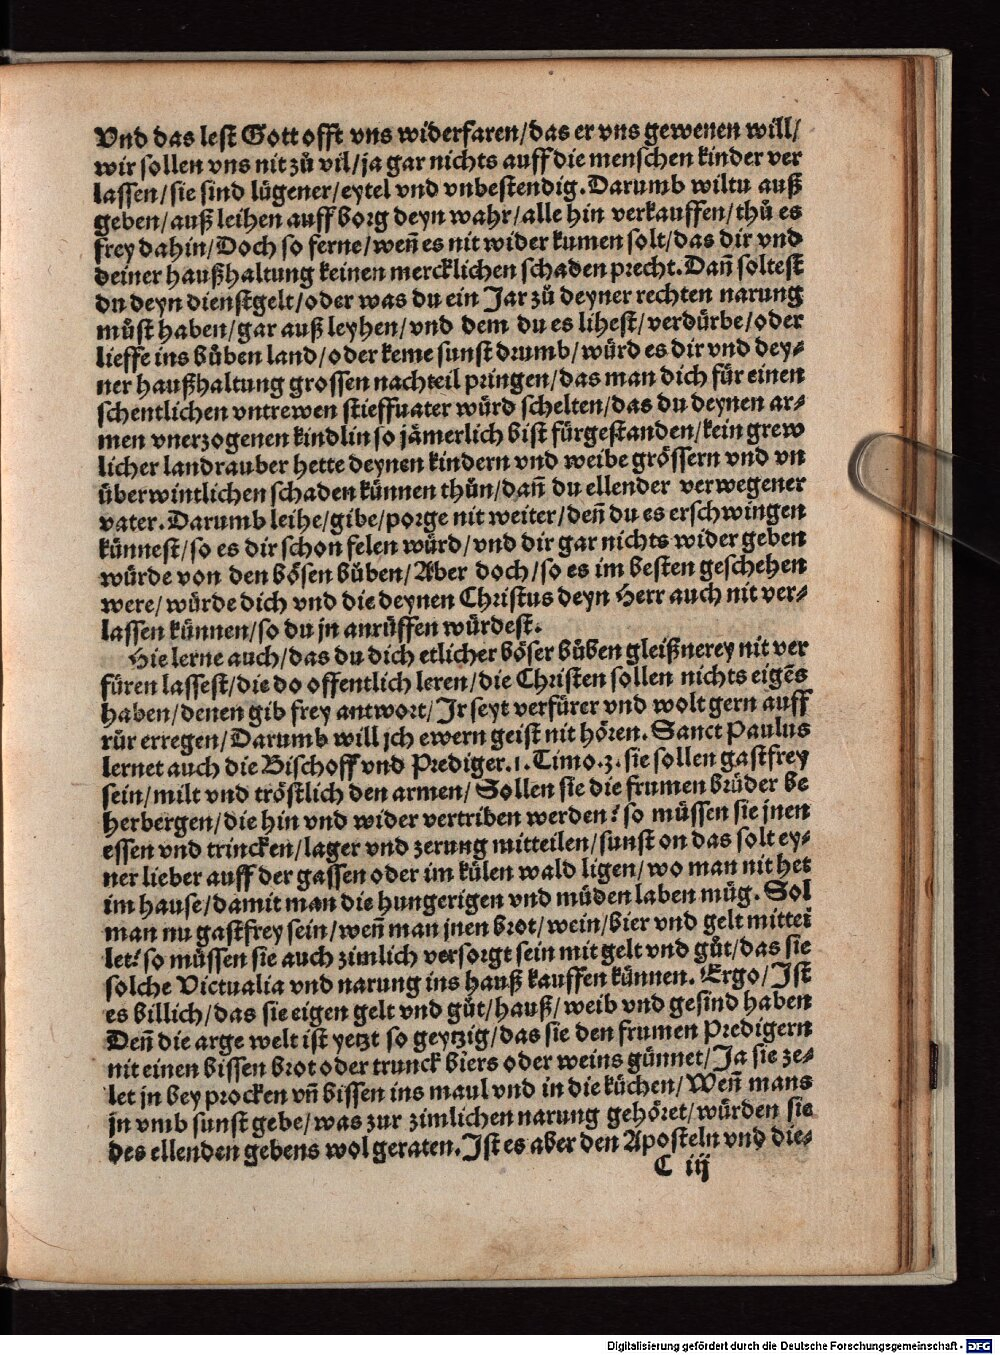 Vnd das lest Gott offt vns widerfaren/das er vns gewenen will/
wir sollen vns nit zů vil/ja gar nichts auff die menschen kinder ver
lassen/sie sind lügener/eytel vnd vnbestendig. Darumb wiltu auß
geben/auß leihen auff borg deyn wahr/alle hin verkauffen/thů es
frey dahin/Doch so ferne/weñ es nit wider kumen solt/das dir vnd
deiner haußhaltung keinen mercklichen schaden precht. Dañ soltest
du deyn dienstgelt/oder was du ein Jar zů deyner rechten narung
můst haben/gar auß leyhen/vnd dem du es lihest/verdürbe/oder
lieffe ins bůben land/oder keme sunst drumb/würd es dir vnd dey-
ner haußhaltung grossen nachteil pringen/das man dich für einen
schentlichen vntrewen stieffuater würd schelten/das du deynen ar-
men vnerzogenen kindlin so jämerlich bist fürgestanden/kein grew
licher landrauber hette deynen kindern vnd weibe grössern vnd vn
überwintlichen schaden künnen thůn/dañ du ellender verwegener
vater. Darumb leihe/gibe/porge nit weiter/deñ du es erschwingen
künnest/so es dir schon felen würd/vnd dir gar nichts wider geben
würde von den bösen bůben/Aber doch/so es im besten geschehen
were/würde dich vnd die deynen Christus deyn Herr auch nit ver-
lassen künnen/so du jn anrüffen würdest.
Hie lerne auch/das du dich etlicher böser bůben gleißnerey nit ver
füren lassest/die do offentlich leren/die Christen sollen nichts eigēs
haben/denen gib frey antwort/Jr seyt verfürer vnd wolt gern auff
růr erregen/Darumb will jch ewern geist nit hören. Sanct Paulus
lernet auch die Bischoff vnd Prediger.1. Timo.3. sie sollen gastfrey
sein/milt vnd tröstlich den armen/Sollen sie die frumen brüder be
herbergen/die hin vnd wider vertriben werden? so müssen sie jnen
essen vnd trincken/lager vnd zerung mitteilen/sunst on das solt ey-
ner lieber auff der gassen oder im külen wald ligen/wo man nit het
im hause/damit man die hungerigen vnd müden laben müg. Sol
man nu gastfrey sein/weñ man jnen brot/wein/bier vnd gelt mittei
let? so müssen sie auch zimlich versorgt sein mit gelt vnd gůt/das sie
solche Victualia vnd narung ins hauß kauffen künnen. Ergo/Jst
es billich/das sie eigen gelt vnd gůt/hauß/weib vnd gesind haben
Deñ die arge welt ist yetzt so geytzig/das sie den frumen Predigern
nit einen bissen brot oder trunck biers oder weins günnet/Ja sie ze-
let jn bey procken vñ bissen ins maul vnd in die küchen/Weñ mans
jn vmb sunst gebe/was zur zimlichen narung gehöret/würden sie
des ellenden gebens wol geraten. Jst es aber den Aposteln vnd die-
C iij
Digitalisierung gefördert durch die Deutsche Forschungsgemeinschaft - DFG